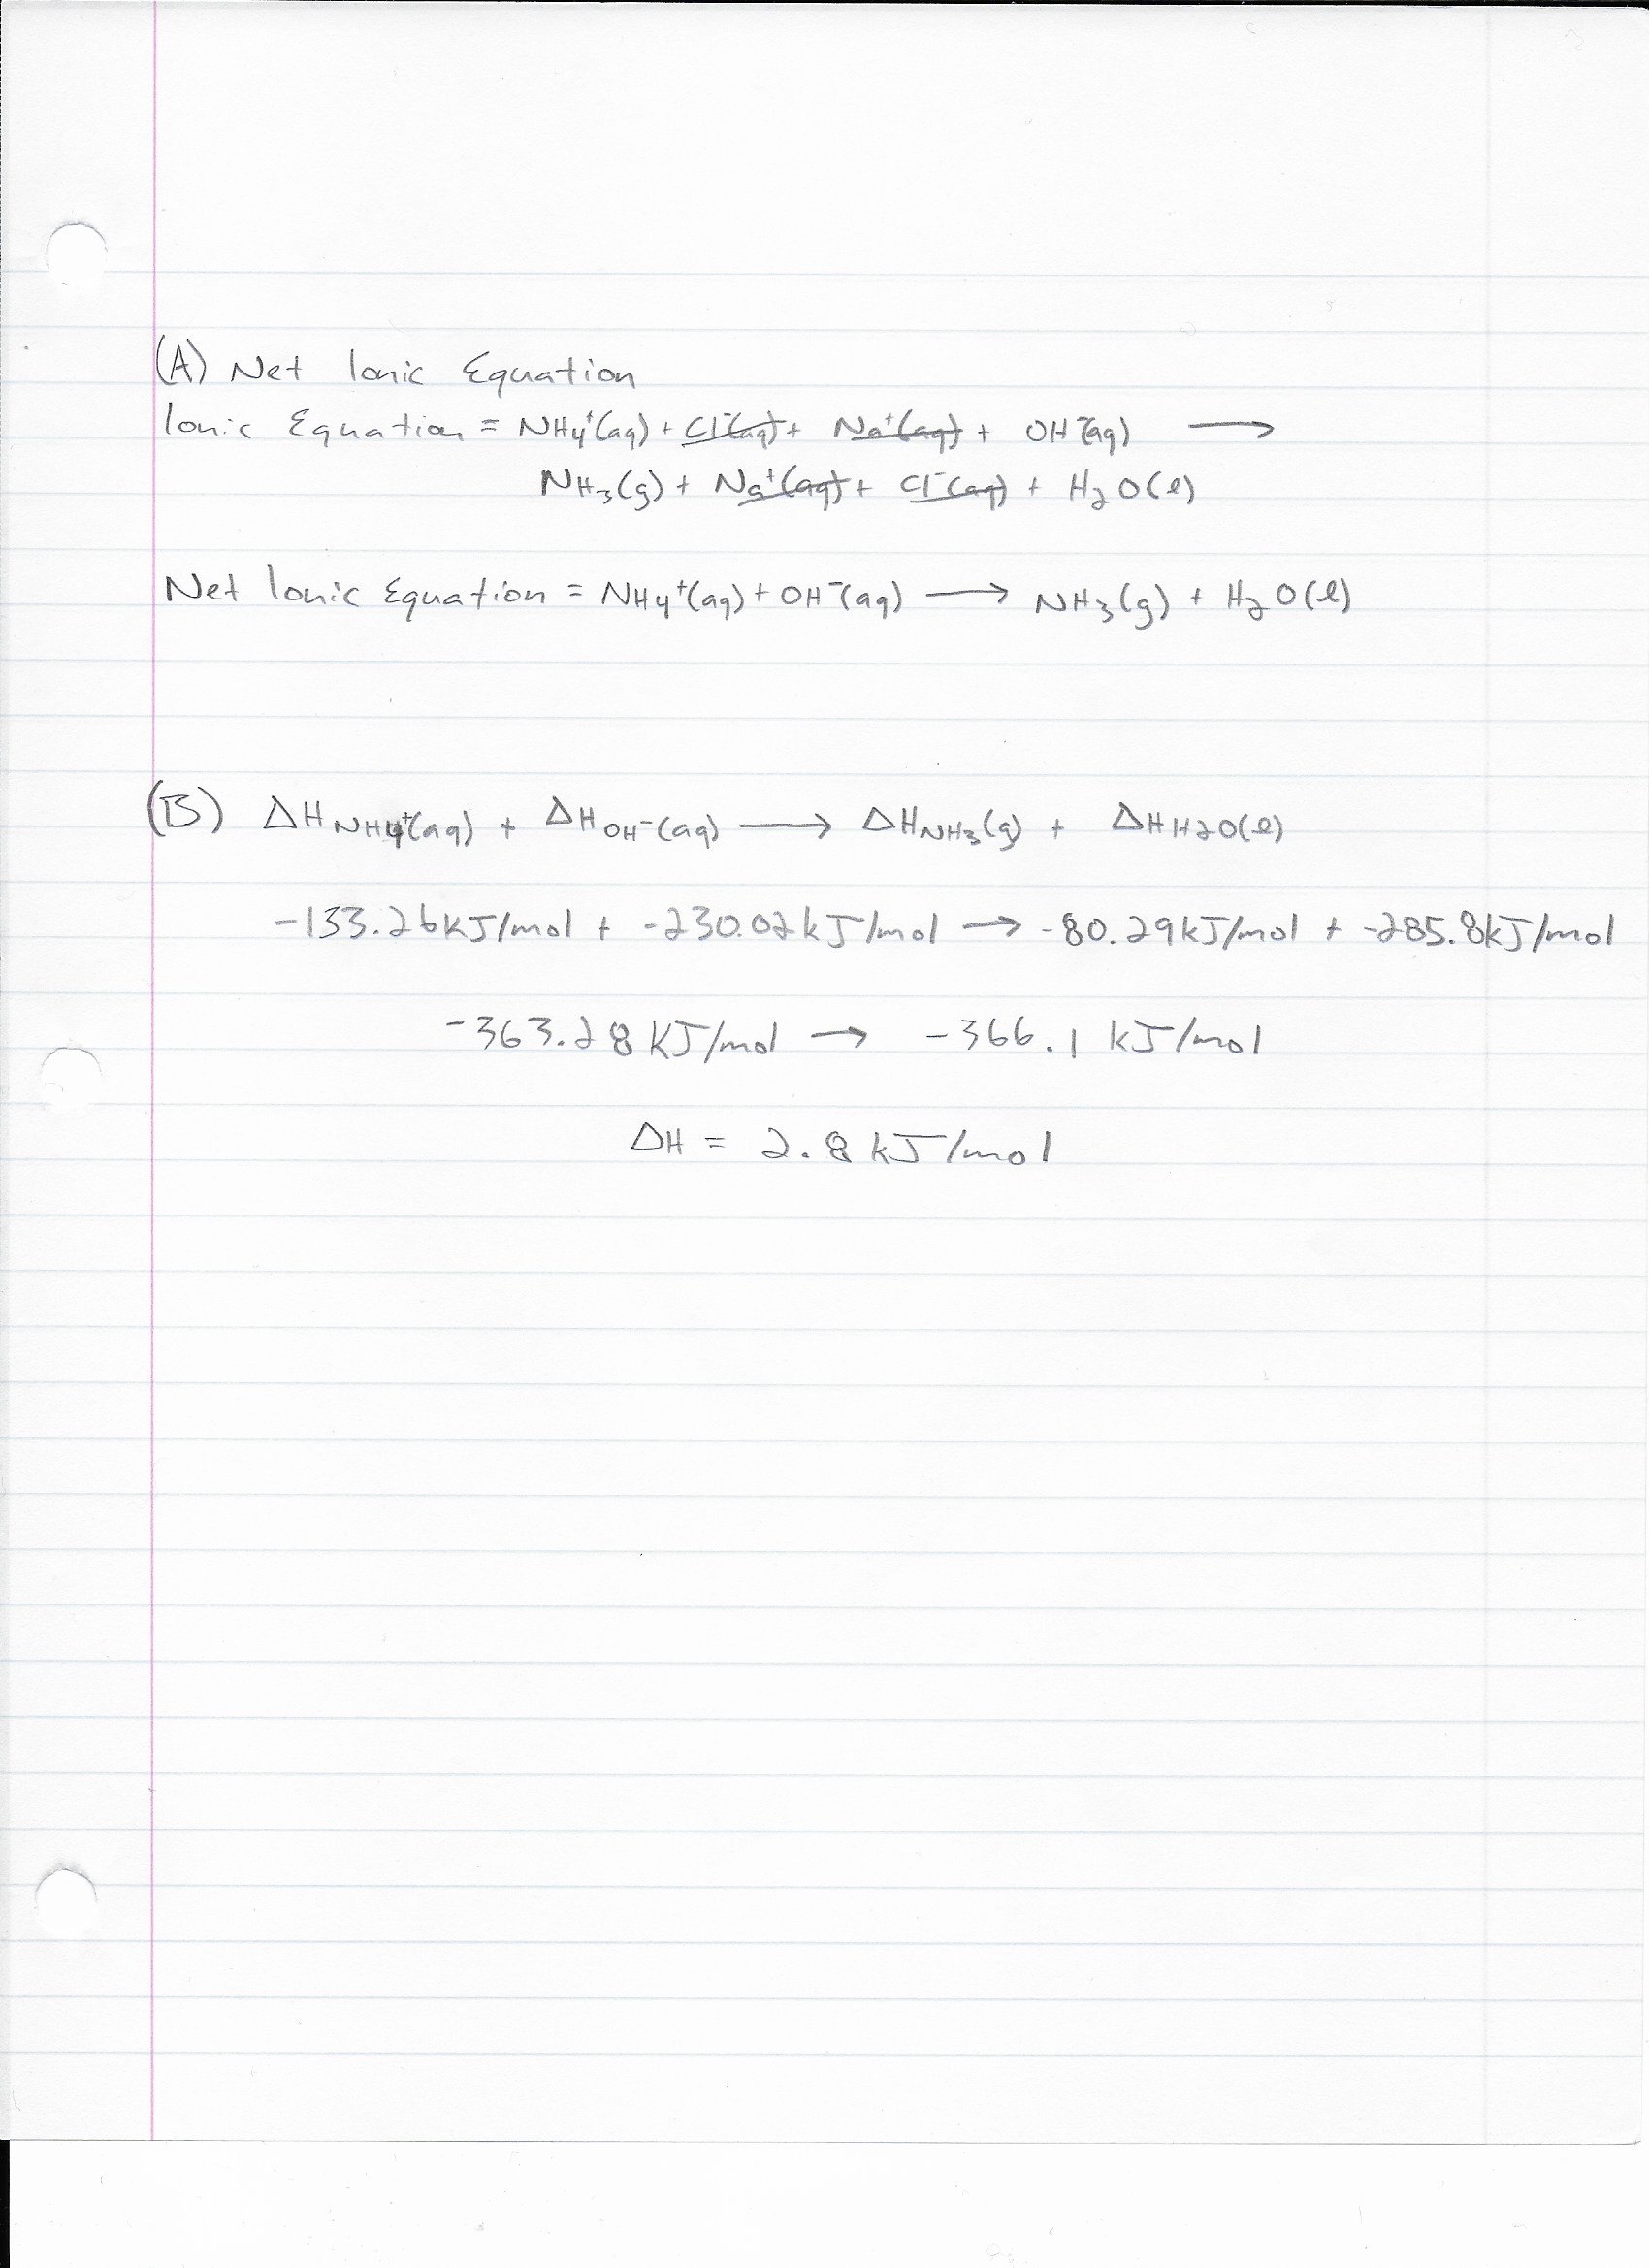 (A) Net Ionic Equation
Ionic Equation = NH₄⁺(aq) + Cl⁻(aq) + Na⁺(aq) + OH⁻(aq) ⟶
NH₃(g) + Na⁺(aq) + Cl⁻(aq) + H₂O(l)
Net Ionic Equation = NH₄⁺(aq) + OH⁻(aq) ⟶ NH₃(g) + H₂O(l)
(B) ΔH NH₄⁺(aq) + ΔH OH⁻(aq) ⟶ ΔH NH₃(g) + ΔH H₂O(l)
-133.26kJ/mol + -230.02kJ/mol → -80.29kJ/mol + -285.8kJ/mol
-363.28 kJ/mol → -366.1 kJ/mol
ΔH = 2.8 kJ/mol